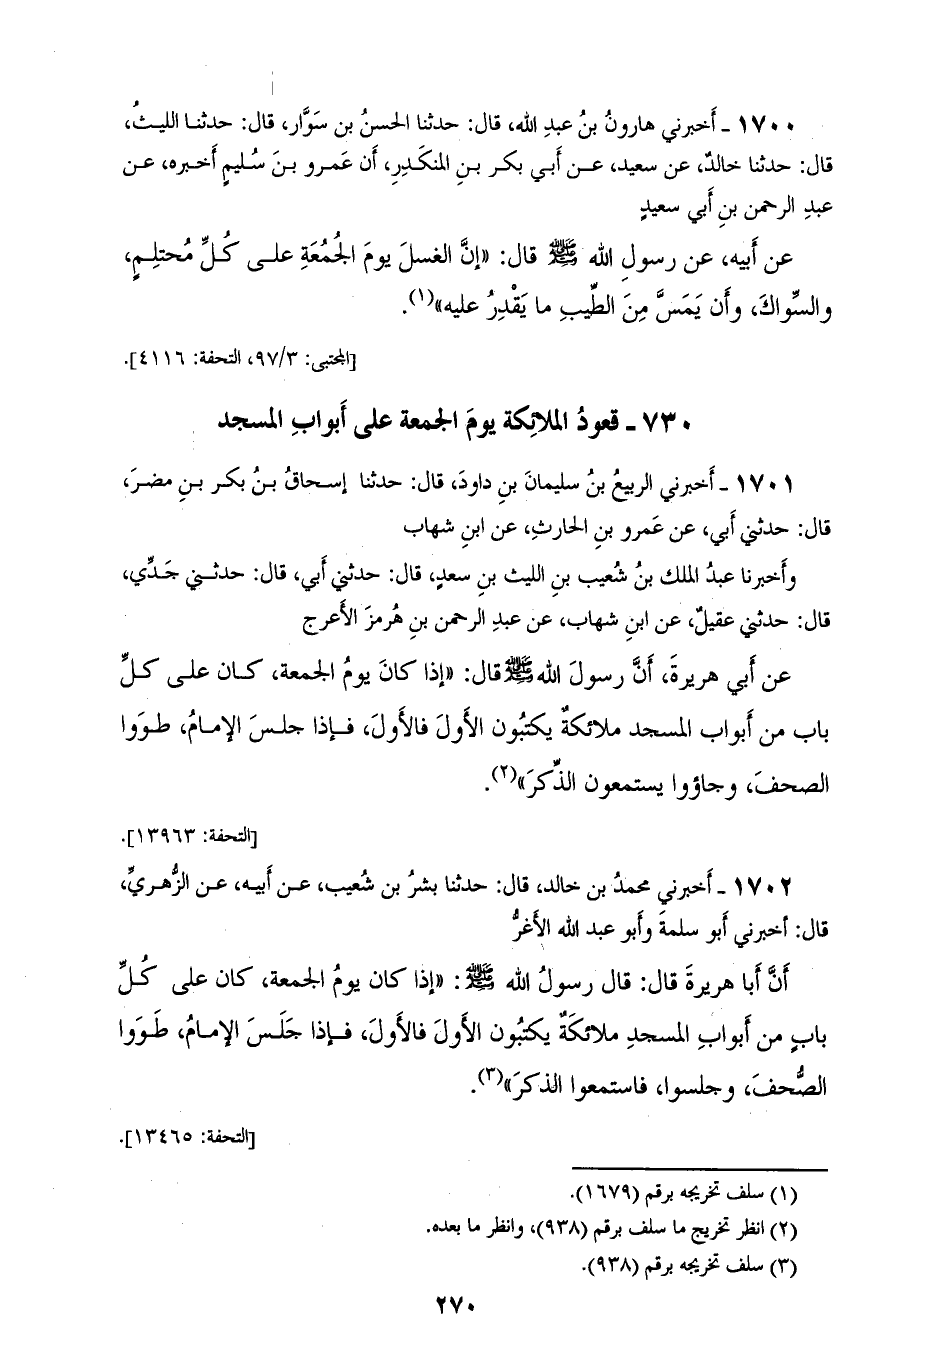 ١٧٠٠ ـ أخبرني هارونُ بنُ عبدِ الله، قال: حدثنا الحسنُ بن سَوَّار، قال: حدثنا الليثُ،
قال: حدثنا خالدٌ، عن سعيد، عن أبي بكر بنِ المنكَدِرِ، أن عَمرو بنَ سُليمٍ أخبره، عن
عبدِ الرحمن بنِ أبي سعيدٍ
عن أبيه، عن رسولِ الله ﷺ قال: «إنَّ الغسلَ يومَ الجُمُعَةِ على كُلِّ مُحتلِمٍ،
والسِّواكَ، وأن يَمَسَّ مِنَ الطِّيبِ ما يَقْدِرُ عليه»(١).
[المجتبى: ٩٧/٣، التحفة: ٤١١٦].
٧٣٠ ـ قعودُ الملائِكة يومَ الجمعة على أبوابِ المسجد
١٧٠١ ـ أخبرني الربيعُ بنُ سليمانَ بنِ داودَ، قال: حدثنا إسحاقُ بنُ بكر بنِ مضرَ،
قال: حدثني أبي، عن عَمرو بنِ الحارثِ، عن ابنِ شهاب
وأخبرنا عبدُ الملك بنُ شُعيب بنِ الليث بنِ سعدٍ، قال: حدثني أبي، قال: حدثني جَدِّي،
قال: حدثني عقيلٌ، عن ابنِ شهاب، عن عبدِ الرحمن بنِ هُرمزَ الأعرج
عن أبي هريرةَ، أنَّ رسولَ الله ﷺ قال: «إذا كانَ يومُ الجمعة، كان على كلِّ
باب من أبواب المسجد ملائكةٌ يكتبُون الأولَ فالأولَ، فإذا جلسَ الإمامُ، طوَوا
الصحفَ، وجاؤوا يستمعون الذِّكرَ»(٢).
[التحفة: ١٣٩٦٣].
١٧٠٢ ـ أخبرني محمدُ بن خالد، قال: حدثنا بشرُ بن شُعيب، عن أبيه، عن الزُّهريِّ،
قال: أخبرني أبو سلمةَ وأبو عبد الله الأغرُّ
أنَّ أبا هريرةَ قال: قال رسولُ الله ﷺ: «إذا كان يومُ الجمعة، كان على كُلِّ
بابٍ من أبوابِ المسجدِ ملائكَةٌ يكتبُون الأولَ فالأولَ، فإذا جَلَسَ الإمامُ، طَوَوا
الصُّحفَ، وجلسوا، فاستمعوا الذكرَ»(٣).
[التحفة: ١٣٤٦٥].
(١) سلف تخريجه برقم (١٦٧٩).
(٢) انظر تخريج ما سلف برقم (٩٣٨)، وانظر ما بعده.
(٣) سلف تخريجه برقم (٩٣٨).
٢٧٠